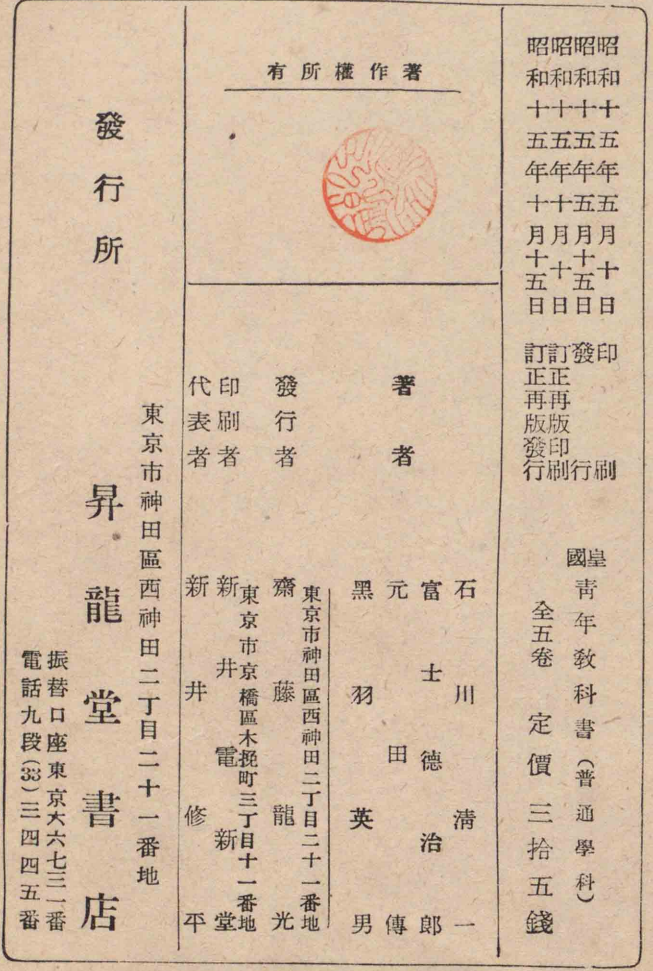 昭和十五年五月十日印刷
昭和十五年五月十五日發行
昭和十五年十月十日訂正再版印刷
昭和十五年十月十五日訂正再版發行
皇國青年敎科書(普通學科)
全五卷 定價三拾五錢
著作權所有
著者
石川淸一
富士德治郎
元田傳
黑羽英男
東京市神田區西神田二丁目二十一番地
發行者 齋藤龍光
東京市京橋區木挽町三丁目十一番地
印刷者 新井電新堂
代表者 新井修平
東京市神田區西神田二丁目二十一番地
發行所 昇龍堂書店
振替口座東京六六七三一番
電話九段(33)三四四五番